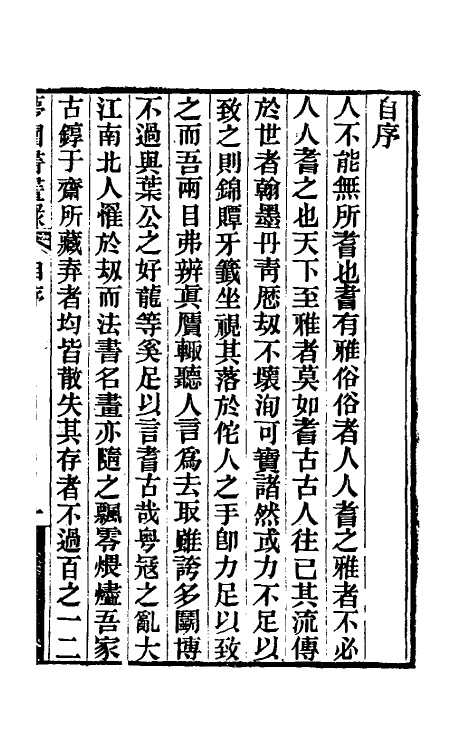 自序
人不能無所耆也耆有雅俗俗者人人耆之雅者不必
人人耆之也天下至雅者莫如耆古古人往已其流傳
於世者翰墨丹靑厯刼不壞洵可寶諸然或力不足以
致之則錦贉牙籤坐視其落於佗人之手卽力足以致
之而吾兩目弗辨眞贋輙聽人言爲去取雖誇多鬭博
不過與葉公之好龍等奚足以言耆古哉粤冦之亂大
江南北人罹於刼而法書名畫亦隨之飄零煨燼吾家
古錞于齋所藏弆者均皆散失其存者不過百之一二
夢園書畫录 自序 一